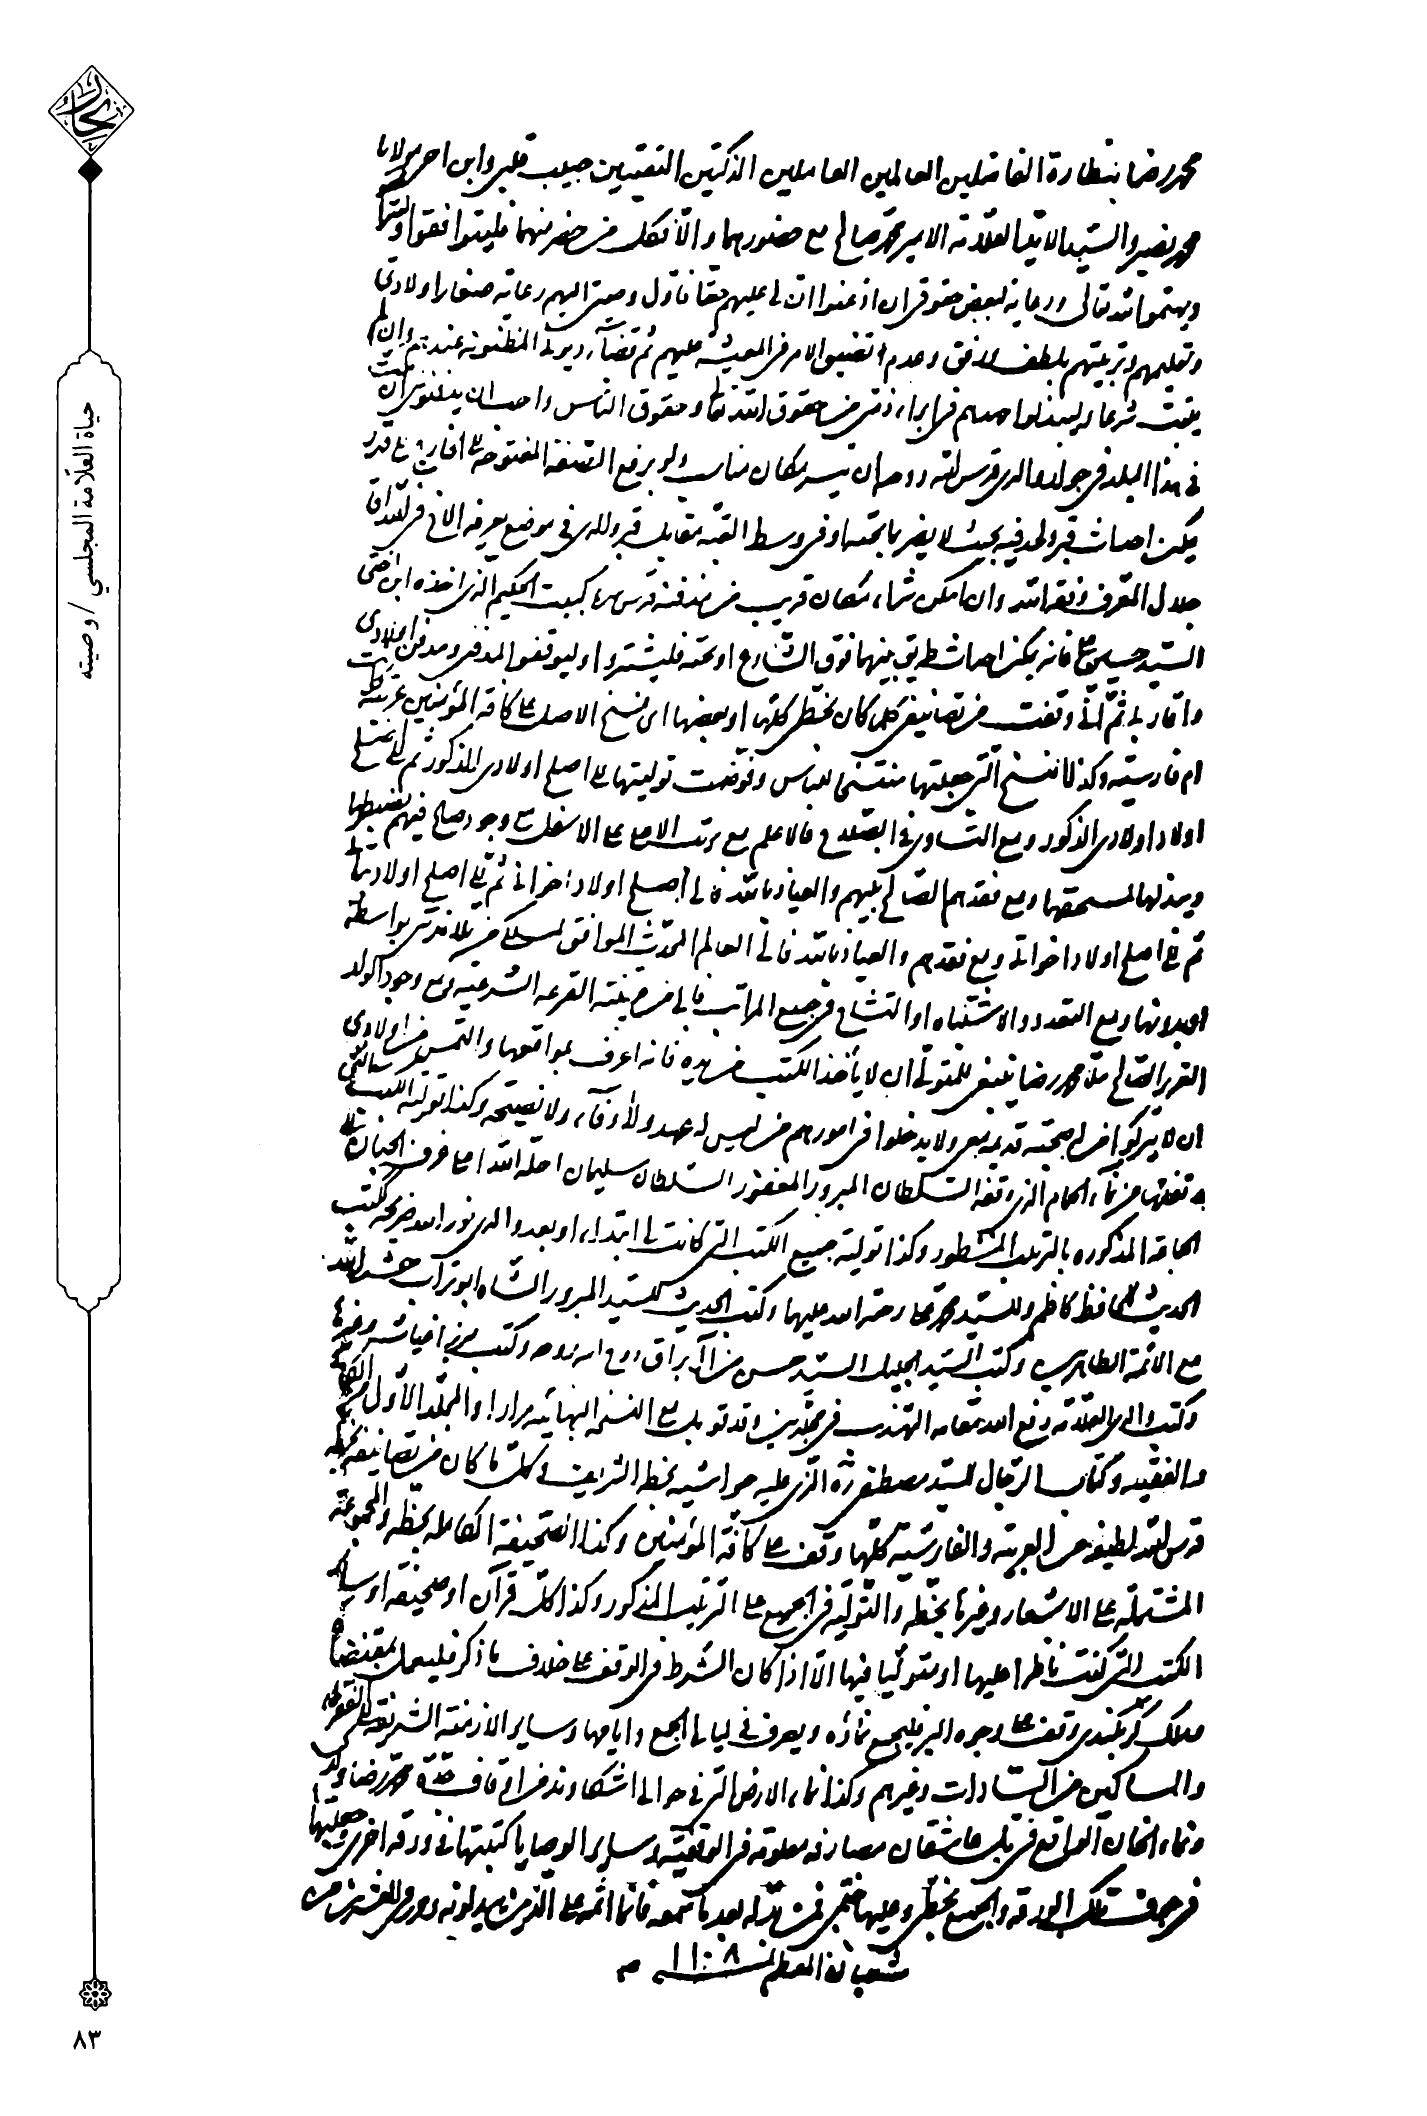 بحار
حياة العلّامة المجلسي / وصيته
محمد رضا بنظارة الفاضلين العالمين العاملين الذكيين التقيين حبيب قلبي وابن اخي مولانا
محمد نصير والسيد الايد العلامة الامير محمد صالح مع حضورهما والا فكل من حضر منهما فليتوافقوا
ويهتموا لله تعالى ورعاية لبعض حقوقي ان اذعنوا ان لي عليهم حقا فاول وصيتي اليهم رعاية صغار اولادي
وتعليمهم وتربيتهم بلطف ورفق وعدم تضييق الامر في المعيشة عليهم ثم قضاء ديوني المظنونة عندهم وان لم
يثبت شرعا وليبذلوا جهدهم في ابراء ذمتي من حقوق الله تعالى وحقوق الناس واحب ان يدفنوني ان مت
في هذا البلد في جوار والدي قدس الله روحه ان تيسر مكان مناسب ولو برفع
يمكن احداث قبر ولحد فيه بحيث لا يضر بما تحته او في وسط القبة مقابل قبر والدي في موضع يعرفه الاخ في الله
جلال وفقه الله وان امكن شراء مكان قريب من مدفنه قدس سره كبيت الحكيم الذي اخذه ابن اختي
السيد حسين فانه يمكن احداث طريق بينهما فوق الشارع او تحته فليشتروا وليوقفوا لمدفني ومدفن اولادي
واقاربي ثم اني وقفت من تصانيفي كل ما كان بخطي كلها او بعضها اي نسخ الاصل على كافة المؤمنين عربية
ام فارسية وكذا النسخ التي جعلتها منتسخا للناس وفوضت توليتها الى اصلح اولادي الذكور ثم الى اصلح
اولاد اولادي الذكور ومع التساوي في الصلاح فالاعلم مع ترتب الاعلى على الاسفل مع وجود صالح فيهم يضبطها
ويبذلها لمستحقها ومع فقدهم الصالح بينهم والعياذ بالله فالى اصلح اولاد اخواني ثم الى اصلح اولاد
ثم الى اصلح اولاد اخواتي ومع فقدهم والعياذ بالله فالى العالم المحدث الموافق لمسلكي من تلامذتي بواسطة
او بدونها ومع التعدد والاشتباه او التشاح في جميع المراتب فالى من عينته القرعة الشرعية ومع وجود الولد
الصالح ملا محمد رضا ينبغي للمتولي ان لا يأخذ الكتب من يده فانه اعرف بمواقعها والتمس من اولادي
ان لا يتركوا من له صحبة قديمة معي ولا يدخلوا في امورهم من ليس له عهد ولا وفاء ولا نصيحة وكذا تولية الكتب التي
وقفتها من نماء الحمام الذي وقفه السلطان المبرور المغفور السلطان سليمان احله الله اعلى غرف الجنان على
المذكورة بالترتيب المسطور وكذا تولية جميع الكتب التي كانت لي ابتداء او بعد والدي نور الله ضريحه ككتب
الحديث للحافظ كاظم وللسيد محمد رحمة الله عليهما وكتب الحديث للسيد المبرور الشاه ابو تراب حشره الله
مع الائمة الطاهرين وكتب السيد الجليل السيد حسن روح الله روحه وكتب ميرزا وغيرها
وكتب والدي العلامة رفع الله مقامه التهذيب في مجلدين وقد قوبل مع النسخ البهائية مرارا والمجلد الاول من
والفقيه وكتاب الرجال للسيد مصطفى ره الذي عليه حواشيه بخطه الشريف وكل ما كان من تصانيفه بخطه
قدس الله لطيفه من العربية والفارسية كلها وقف على كافة المؤمنين وكذا الصحيفة الكاملة بخطه والمجموعة
المشتملة على الاشعار وغيرها بخطه والتولية في الجميع على الترتيب المذكور وكذا كل قرآن او صحيفة او ساير
الكتب التي كنت ناظرا عليها او متوليا فيها الا اذا كان الشرط في الوقف على خلاف ما ذكر فليعمل بمقتضاه
وقف على وجوه البر فليجمع نماؤه ويصرف في ليالي الجمع وايامها وساير الازمنة الشريفة للفقراء
والمساكين من السادات وغيرهم وكذا نماء الارض التي في حوالي محمد رضا
ونماء الخان الواقع في مصارفه معلومة في الوقفية وساير الوصايا كتبتها في ورقة اخرى وجعلتها
في جوف تلك الورقة والجميع بخطي وعليها ختمي فمن بدله بعد ما سمعه فانما اثمه على الذين يبدلونه
شعبان المعظم سنة ١١٠٨
٨٣